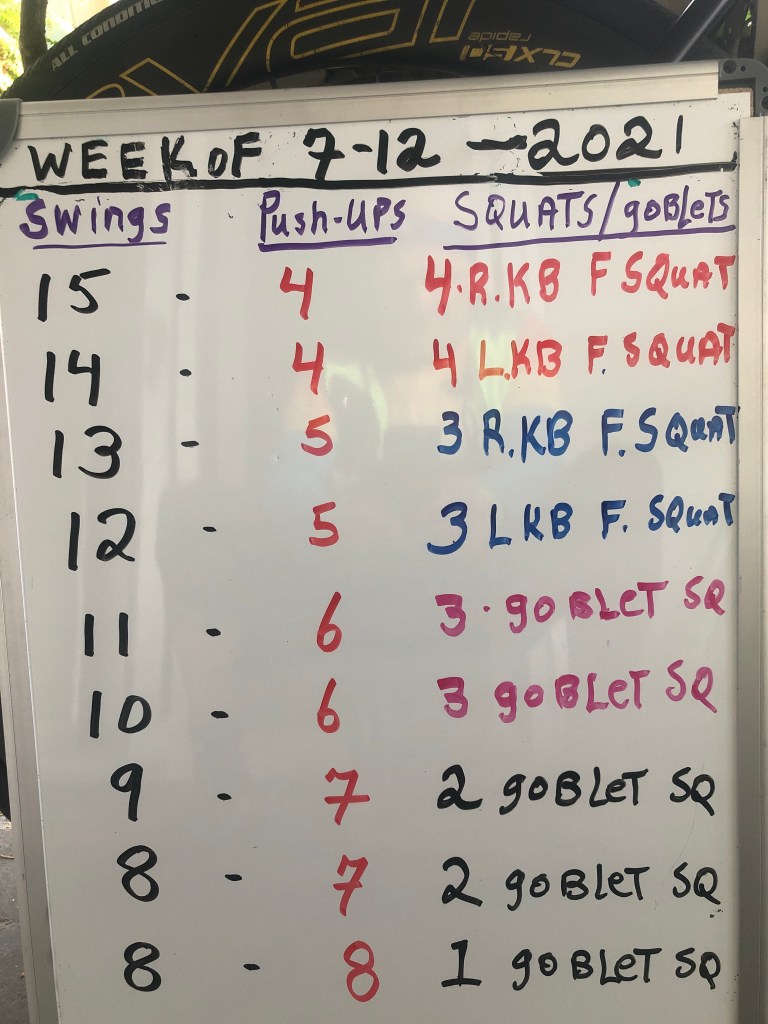 ALL CONDITION
CLX 60
rapide
WEEK OF 7-12 - 2021
SWings Push-UPS SQUATS/goBLeTS
15 - 4 4.R.KB F SQUAT
14 - 4 4 L.KB F. SQUAT
13 - 5 3 R.KB F. SQUAT
12 - 5 3 L KB F. SQUAT
11 - 6 3 - goBLeT SQ
10 - 6 3 goBLeT SQ
9 - 7 2 goBLeT SQ
8 - 7 2 goBLeT SQ
8 - 8 1 goBLeT SQ